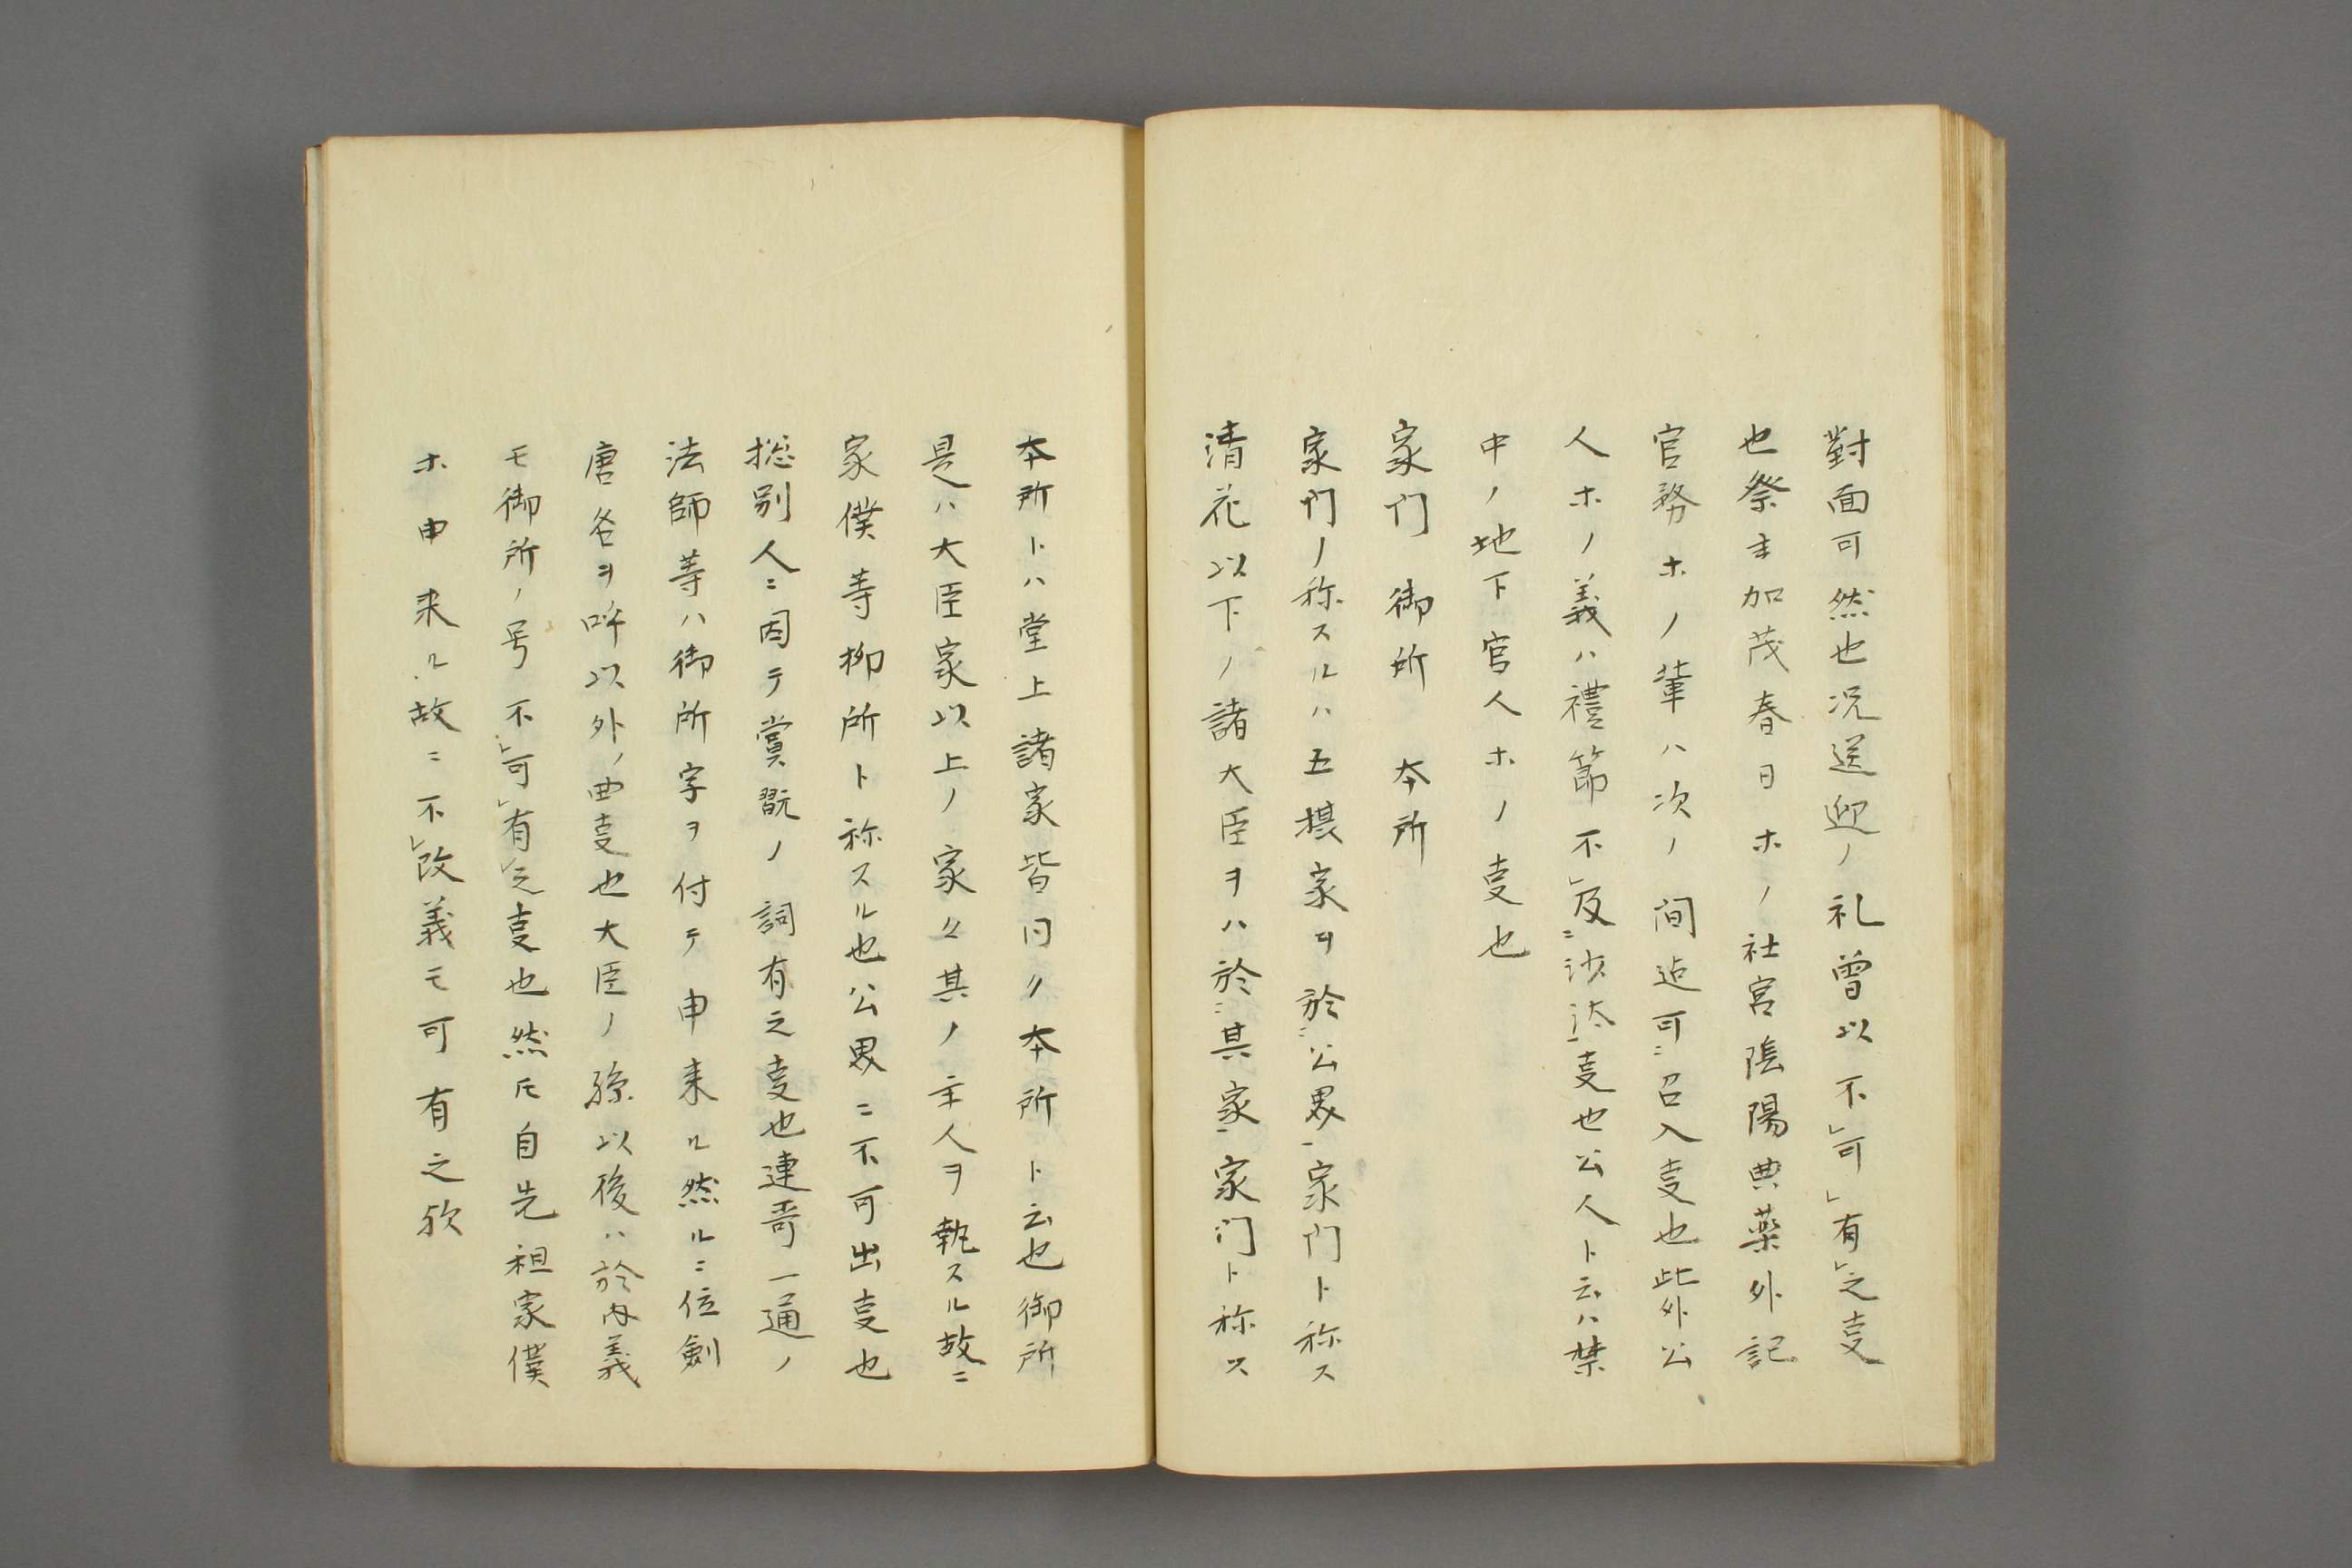 對面可然也况送迎ノ礼曽以不レ可レ有レ之叓
也祭主加茂春日ホノ社官陰陽典薬外記
官務ホノ輩ハ次ノ間迠可ニ召入叓也此外公
人ホノ義ハ禮節不レ及ニ沙汰一叓也公人ト云ハ禁
中ノ地下官人ホノ叓也
家門　御所　本所
家門ノ称スルハ五摂家ヲ於ニ公界一家門ト称ス
清花以下ノ諸大臣ヲハ於ニ其家一家门ト称ス
本所トハ堂上諸家皆同ク本所ト云也御所
是ハ大臣家以上ノ家々其ノ主人ヲ執スル故ニ
家僕等御所ト称スル也公界ニ不可出叓也
惣別人ニ因テ賞翫ノ詞有之叓也連哥一通ノ
法師等ハ御所字ヲ付テ申来ル然ルニ位剱
唐名ヲ呼以外ノ曲叓也大臣ノ孫以後ハ於内義
モ御所ノ号不レ可レ有レ之叓也然𪜈自先祖家僕
ホ申来ル故ニ不レ改義モ可有之欤